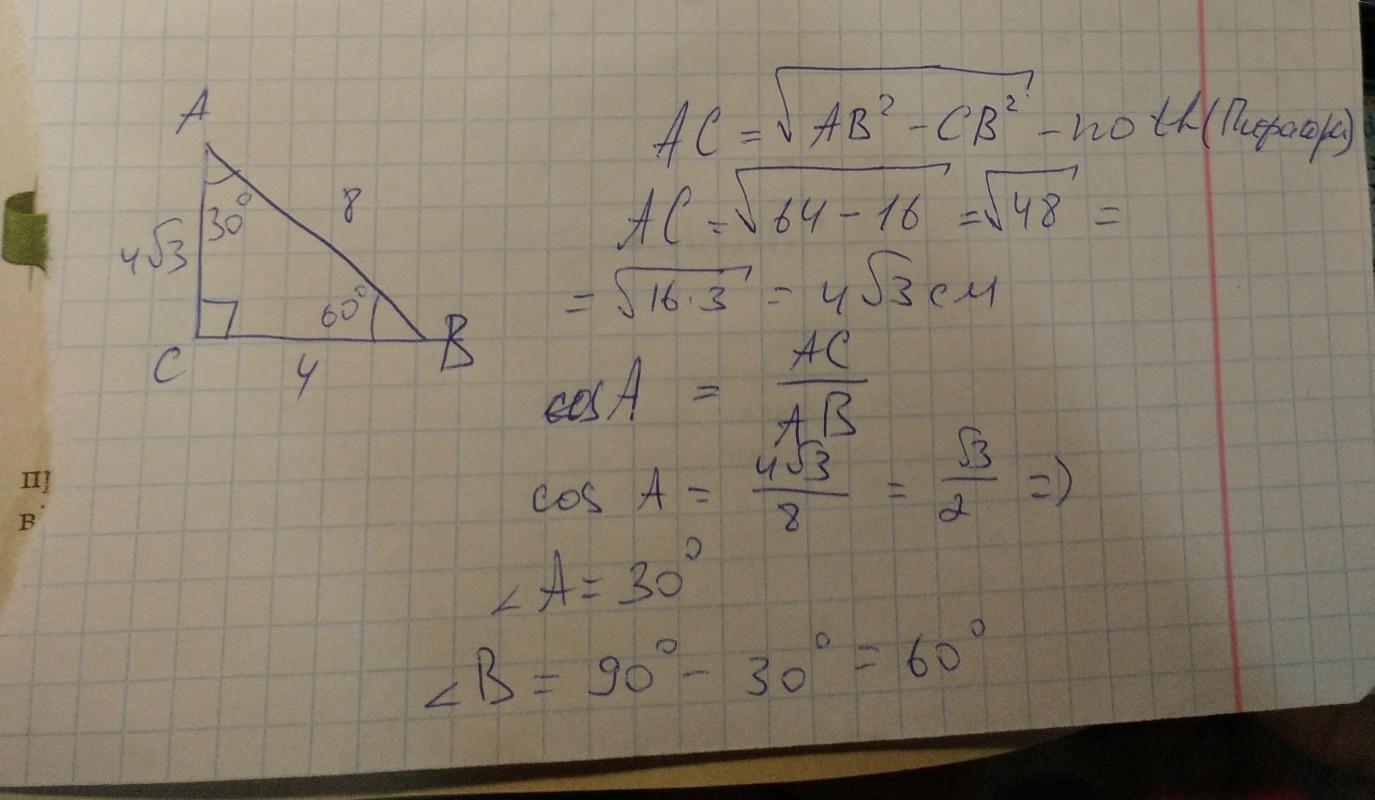 A
8
30°
4√3
60°
C
4
B
AC = √AB² - CB² - по th(Пифагора)
AC = √64 - 16 = √48 =
= √16·3 = 4√3 см
cosA = AC / AB
cos A = 4√3 / 8 = √3 / 2 =>
∠A = 30°
∠B = 90° - 30° = 60°
в